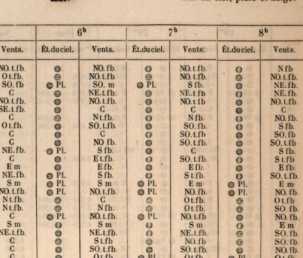 6ʰ 7ʰ 8ʰ
Vents. Ét.duciel. Vents. Ét.duciel. Vents. Ét.duciel. Vents.
NO.t.fb. NO.t.fb. NO.t.fb. N fb.
O t.fb. NO.t.fb. NO.t.fb. NO.fb.
SO.fb. Pl. SO. m Pl. S fb. NE.fb.
C NE.t.fb. NE.t.fb. NE.fb.
NO.t.fb. NO.t.fb. NO.t.fb. NO.t.fb.
SE.t.fb. C C C
C N t.fb. N fb. NO.fb.
O t.fb. SO.t.fb. SO.fb. S fb.
C C SO.t.fb. SO.fb.
C NO fb. SO.t.fb. SO.t.fb.
NE.fb. Pl. S fb. S fb. S fb.
C E t.fb. SO.t.fb. S t.fb.
E m E fb. E fb. E fb.
NE.fb. Pl. S fb. S t.fb. SO.t.fb.
S m Pl. S m Pl. E m Pl. E m
NO.t.fb. Pl. NO.t.fb. Pl. NO.fb. Pl. NO.fb.
N t.fb. C O t.fb. O t.fb.
N t.fb. N fb. O t.fb. SO fb.
C Pl. NO.t.fb. Pl. NO.t.fb. NO.fb.
S m S m S m E m
NE.t.fb. NE.t.fb. NE.t.fb. SO.fb.
C S t.fb. NO.fb. SO.fb.
S t.fb. SO.t.fb. SO.t.fb. SO.fb.